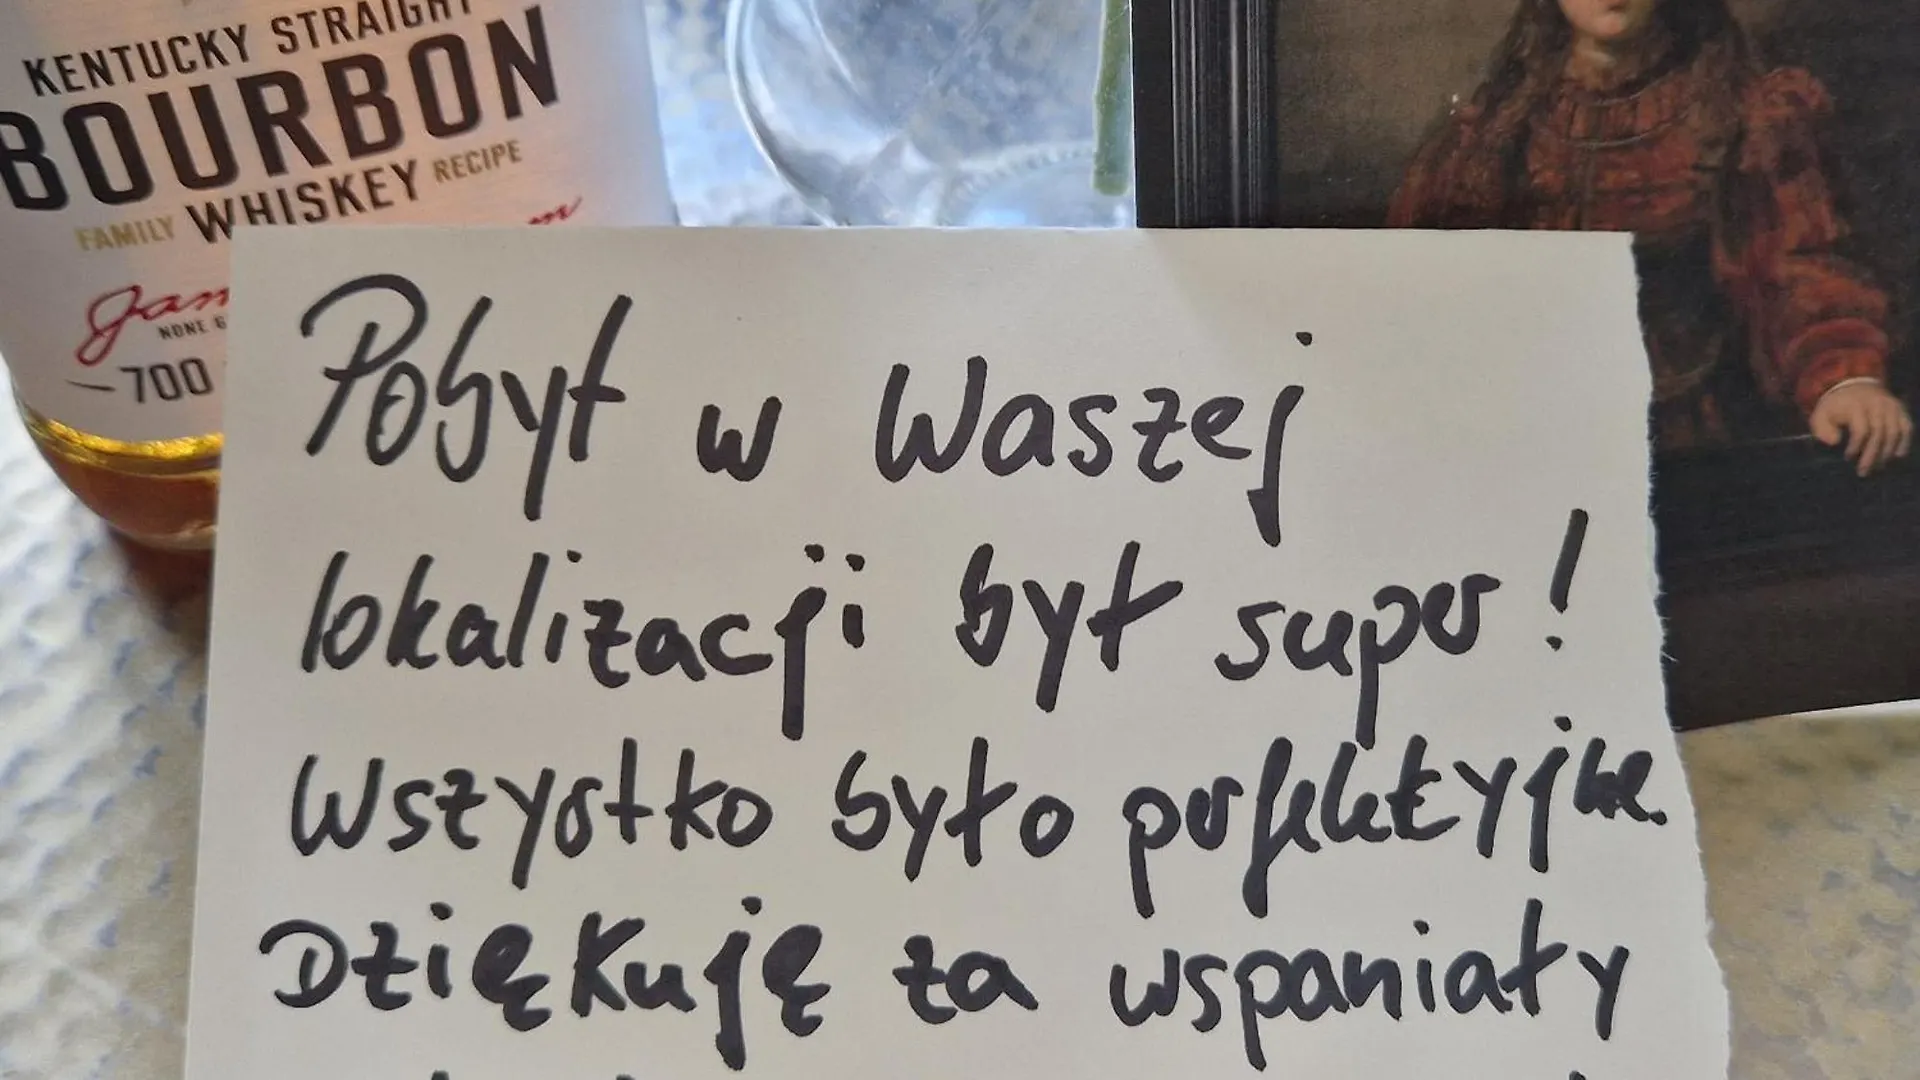 KENTUCKY STRAIGHT
BOURBON
FAMILY WHISKEY RECIPE
NONE
700
Pobyt w Waszej
lokalizacji był super!
Wszystko było perfekcyjne.
Dziękuję za wspaniały